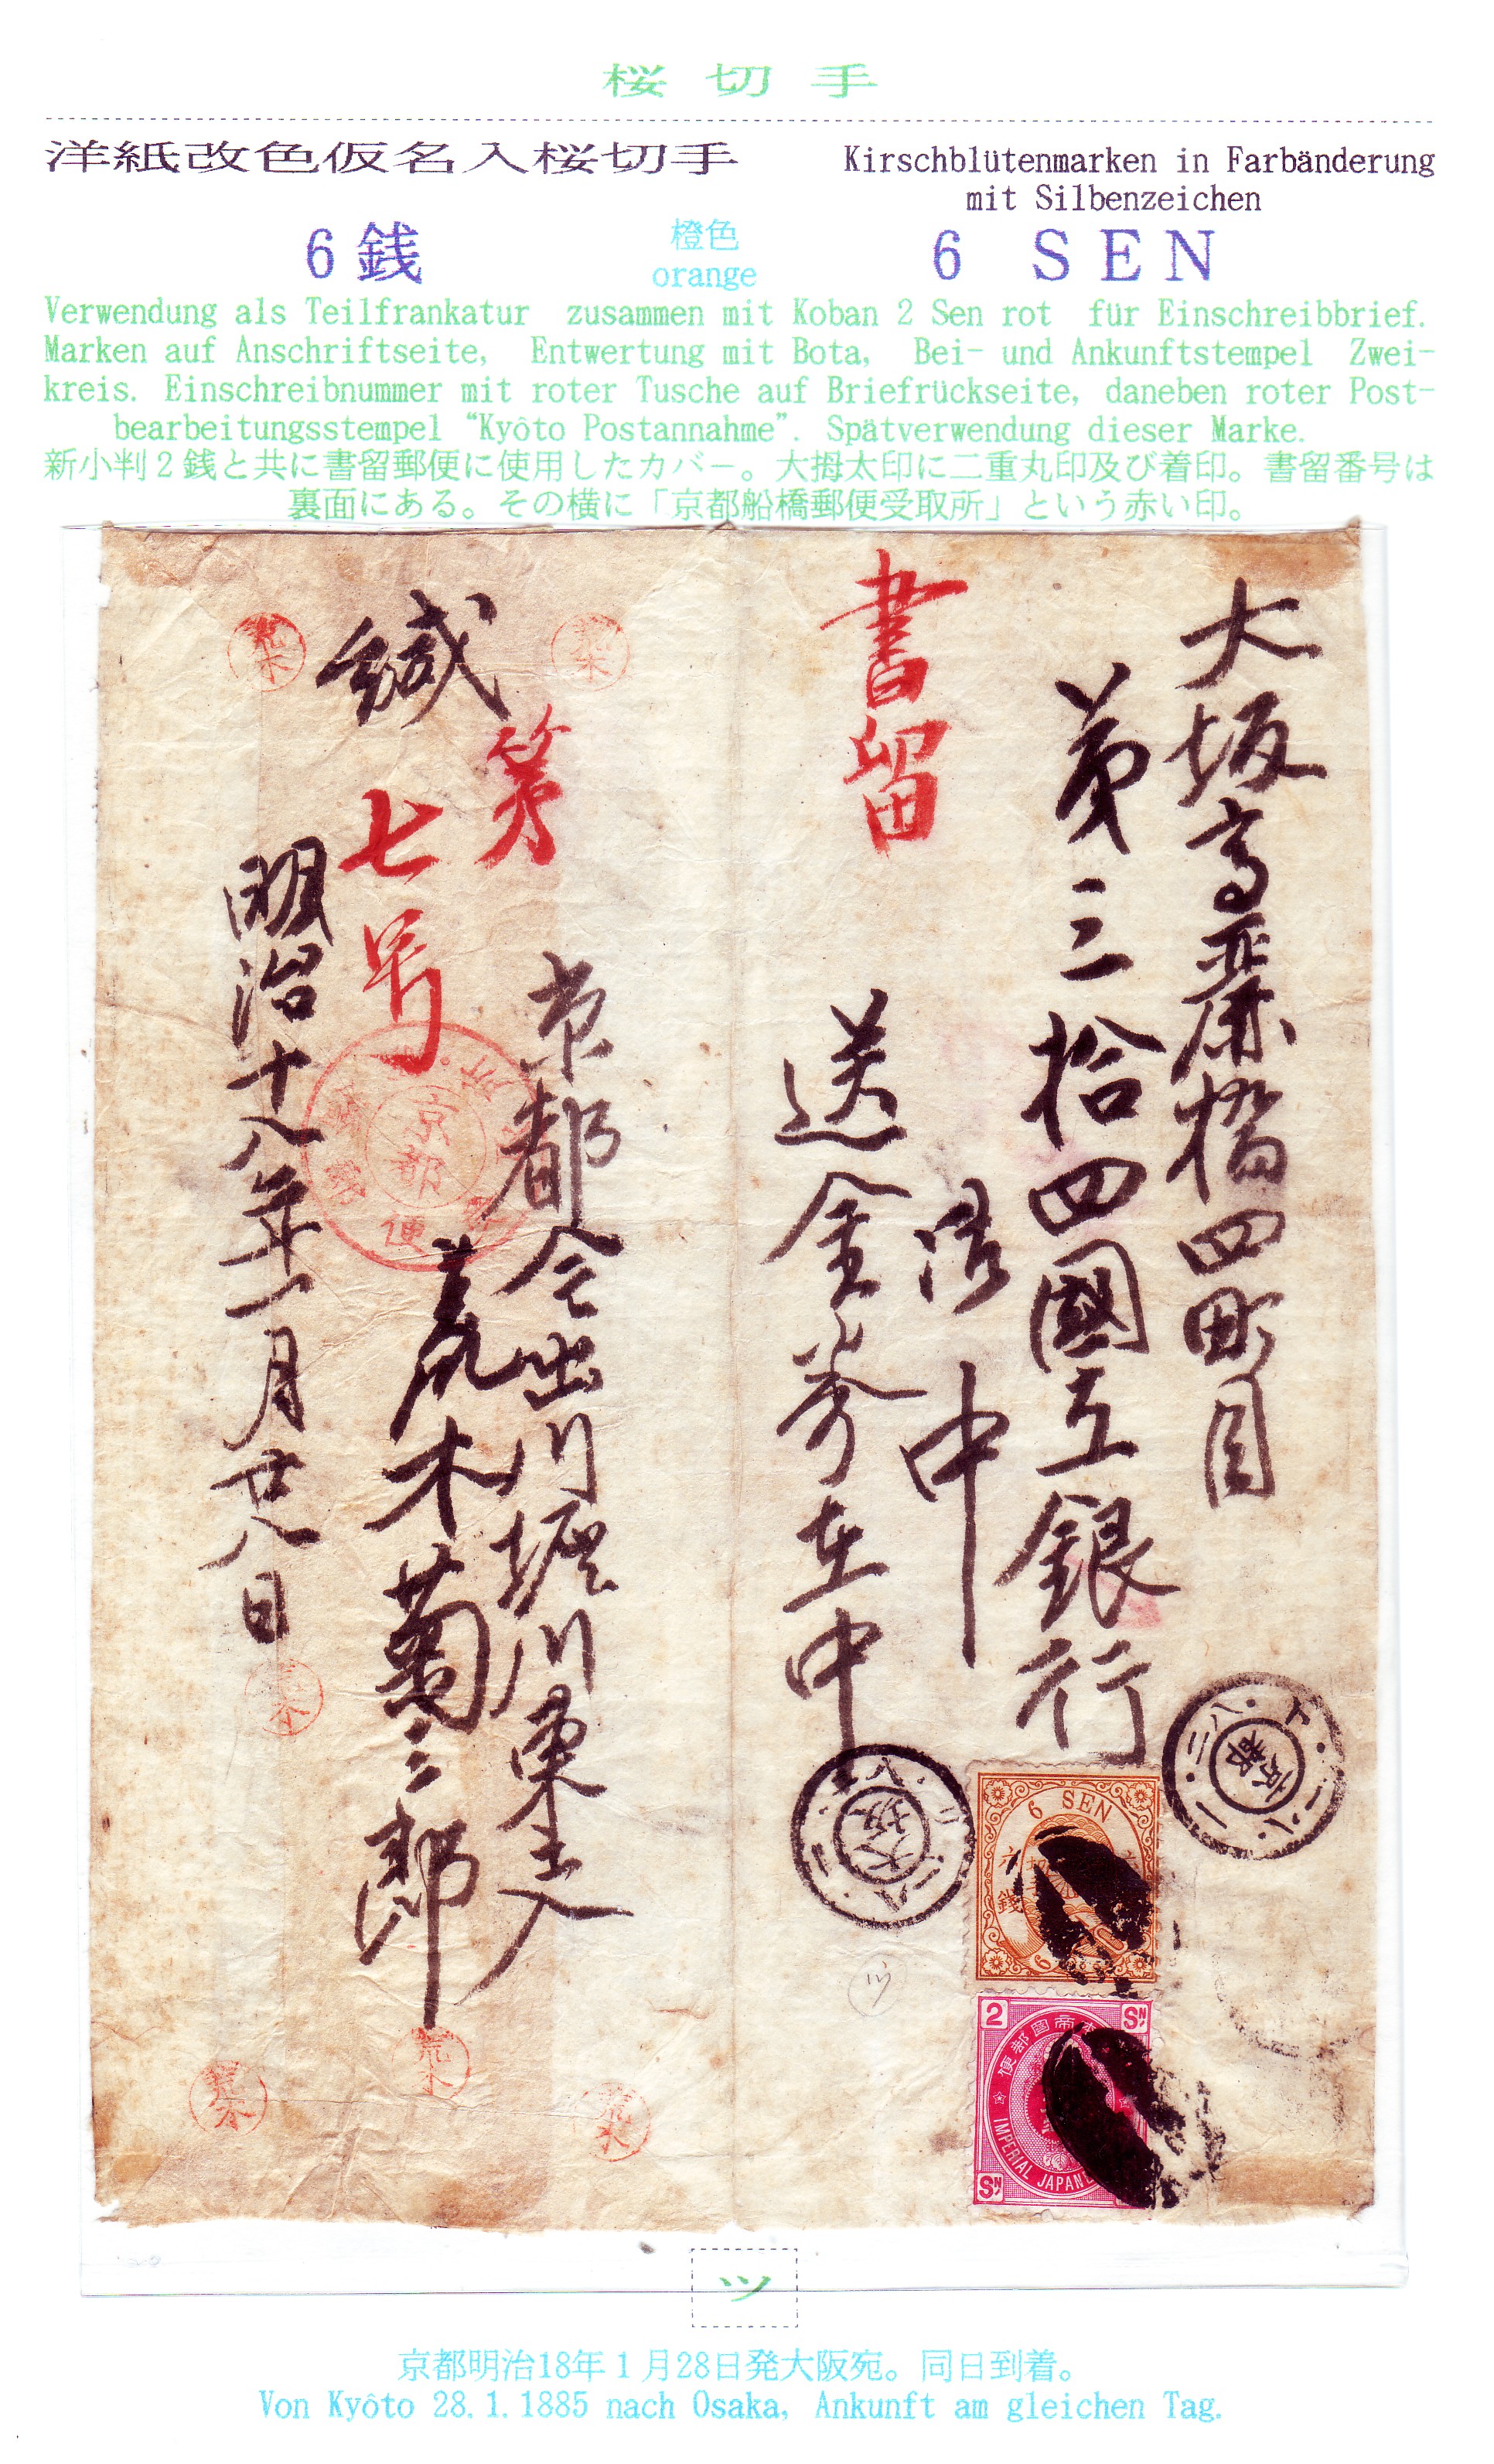 桜切手
洋紙改色仮名入桜切手
Kirschblütenmarken in Farbänderung
mit Silbenzeichen
6銭
橙色
orange
6 SEN
Verwendung als Teilfrankatur zusammen mit Koban 2 Sen rot für Einschreibbrief.
Marken auf Anschriftseite, Entwertung mit Bota, Bei- und Ankunftstempel Zwei-
kreis. Einschreibnummer mit roter Tusche auf Briefrückseite, daneben roter Post-
bearbeitungsstempel “Kyôto Postannahme”. Spätverwendung dieser Marke.
新小判2銭と共に書留郵便に使用したカバー。大拇太印に二重丸印及び着印。書留番号は
裏面にある。その横に「京都船橋郵便受取所」という赤い印。
大坂高麗橋四町目
第三拾四國立銀行
御中
送金券在中
書留
京都今出川堀川東入
荒木菊三郎
第七号
緘
明治十八年一月廿八日
荒木
荒木
京都
便
京都
一八・一・二八・
大坂
6 SEN
銭
2 SN
IMPERIAL JAPANE
SN
荒木
荒木
荒木
荒木
ツ
京都明治18年1月28日発大阪宛。同日到着。
Von Kyôto 28.1.1885 nach Osaka, Ankunft am gleichen Tag.